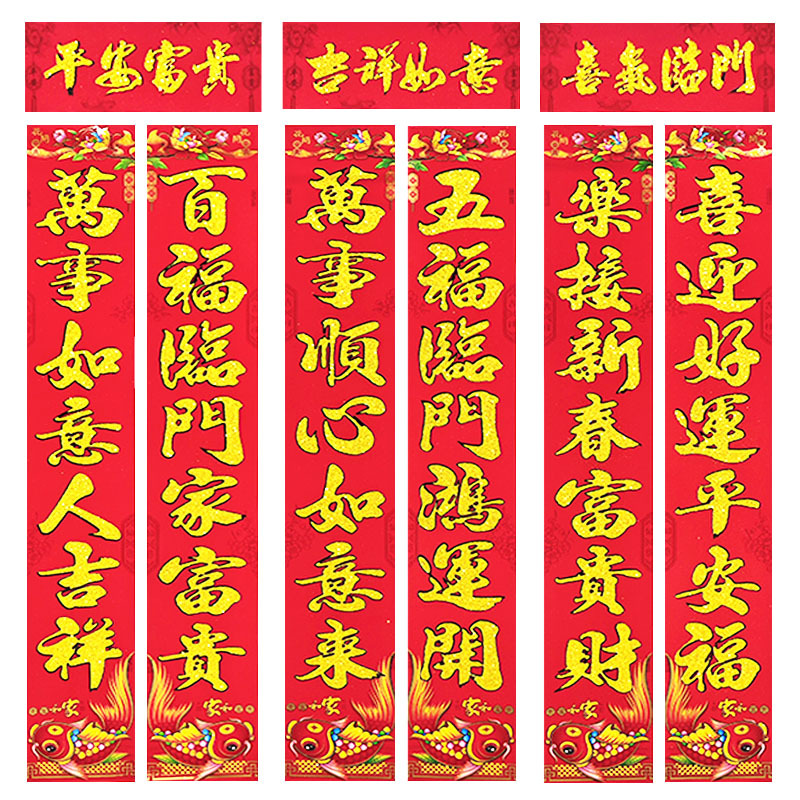 平安富貴
百福臨門家富貴
萬事如意人吉祥
吉祥如意
五福臨門鴻運開
萬事順心如意來
喜氣臨門
喜迎好運平安福
樂接新春富貴財